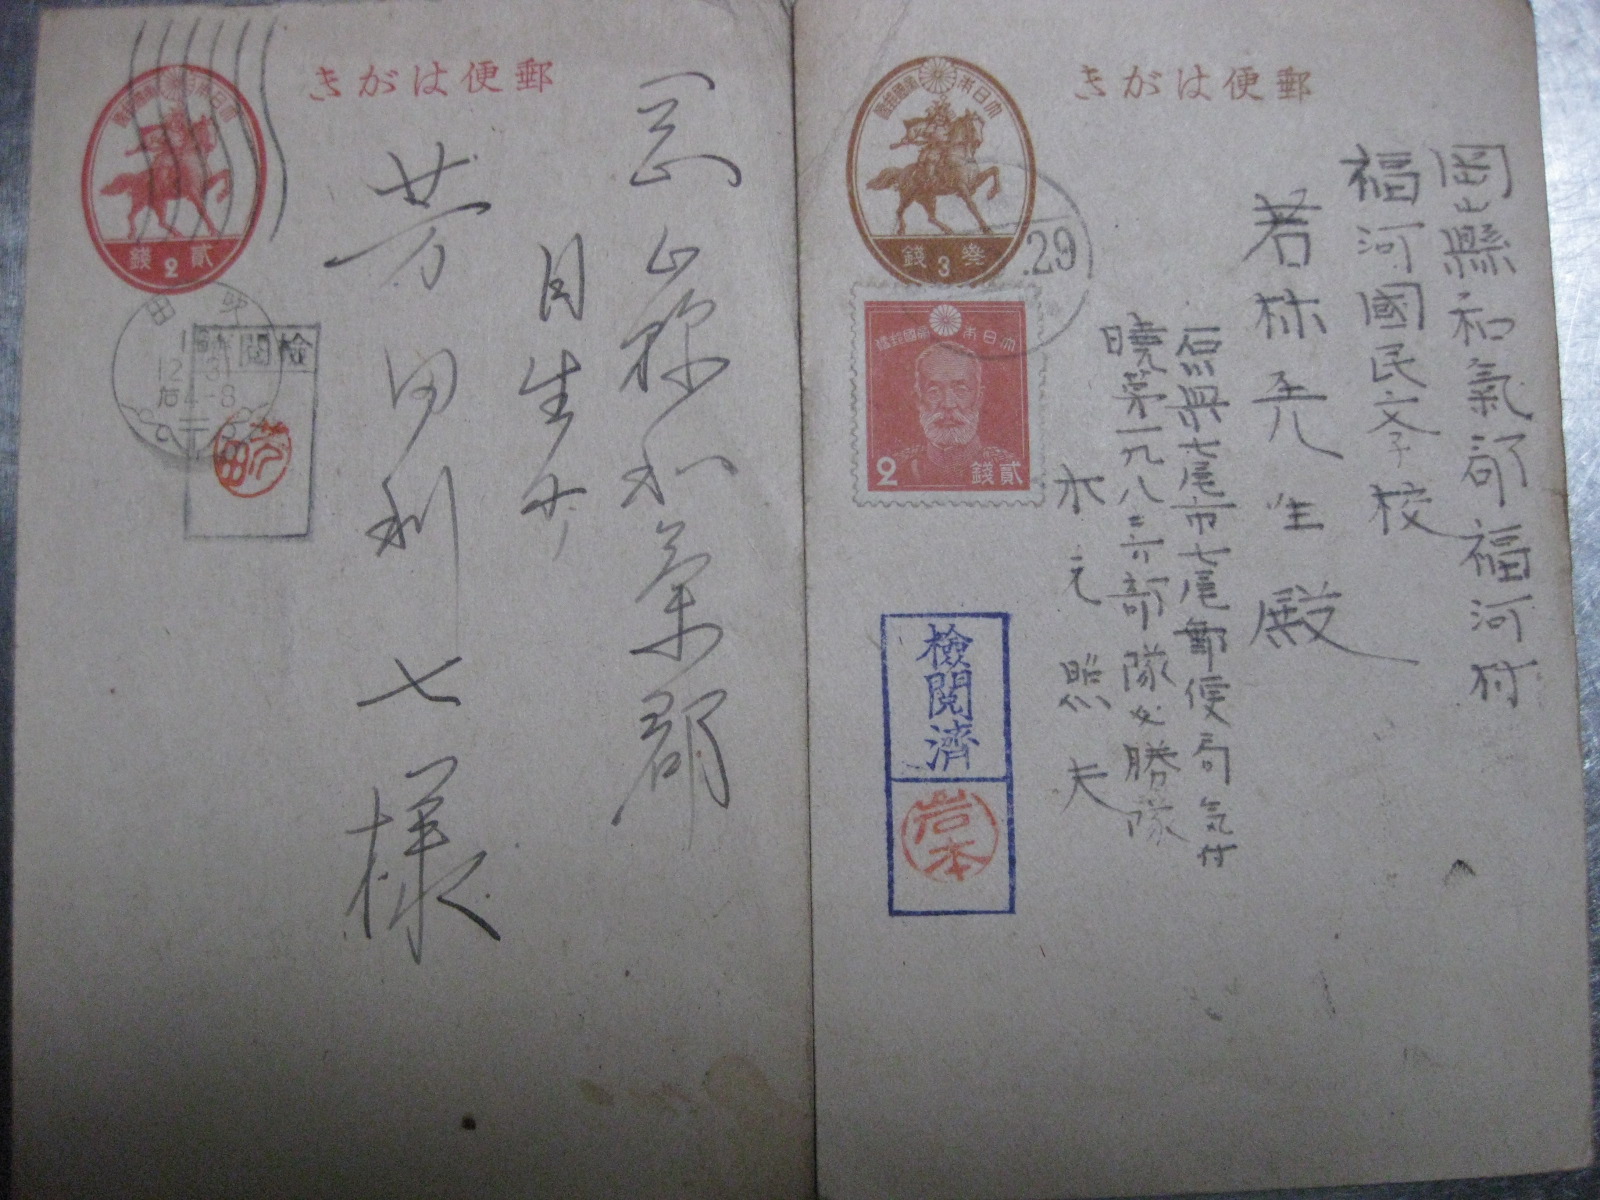 郵便はがき
岡山縣和氣郡福河村
福河國民学校
若林先生殿
石川県七尾市七尾郵便局気付
暁第一九八二六部隊必勝隊
水元照夫
大日本帝國郵便
參3錢
.29
大日本帝國郵便
貳錢
2
檢閲濟
岩本
郵便はがき
岡山縣和氣郡
日生町
芳田利七様
大日本帝國郵便
貳2錢
檢閲
12 31
后4-8